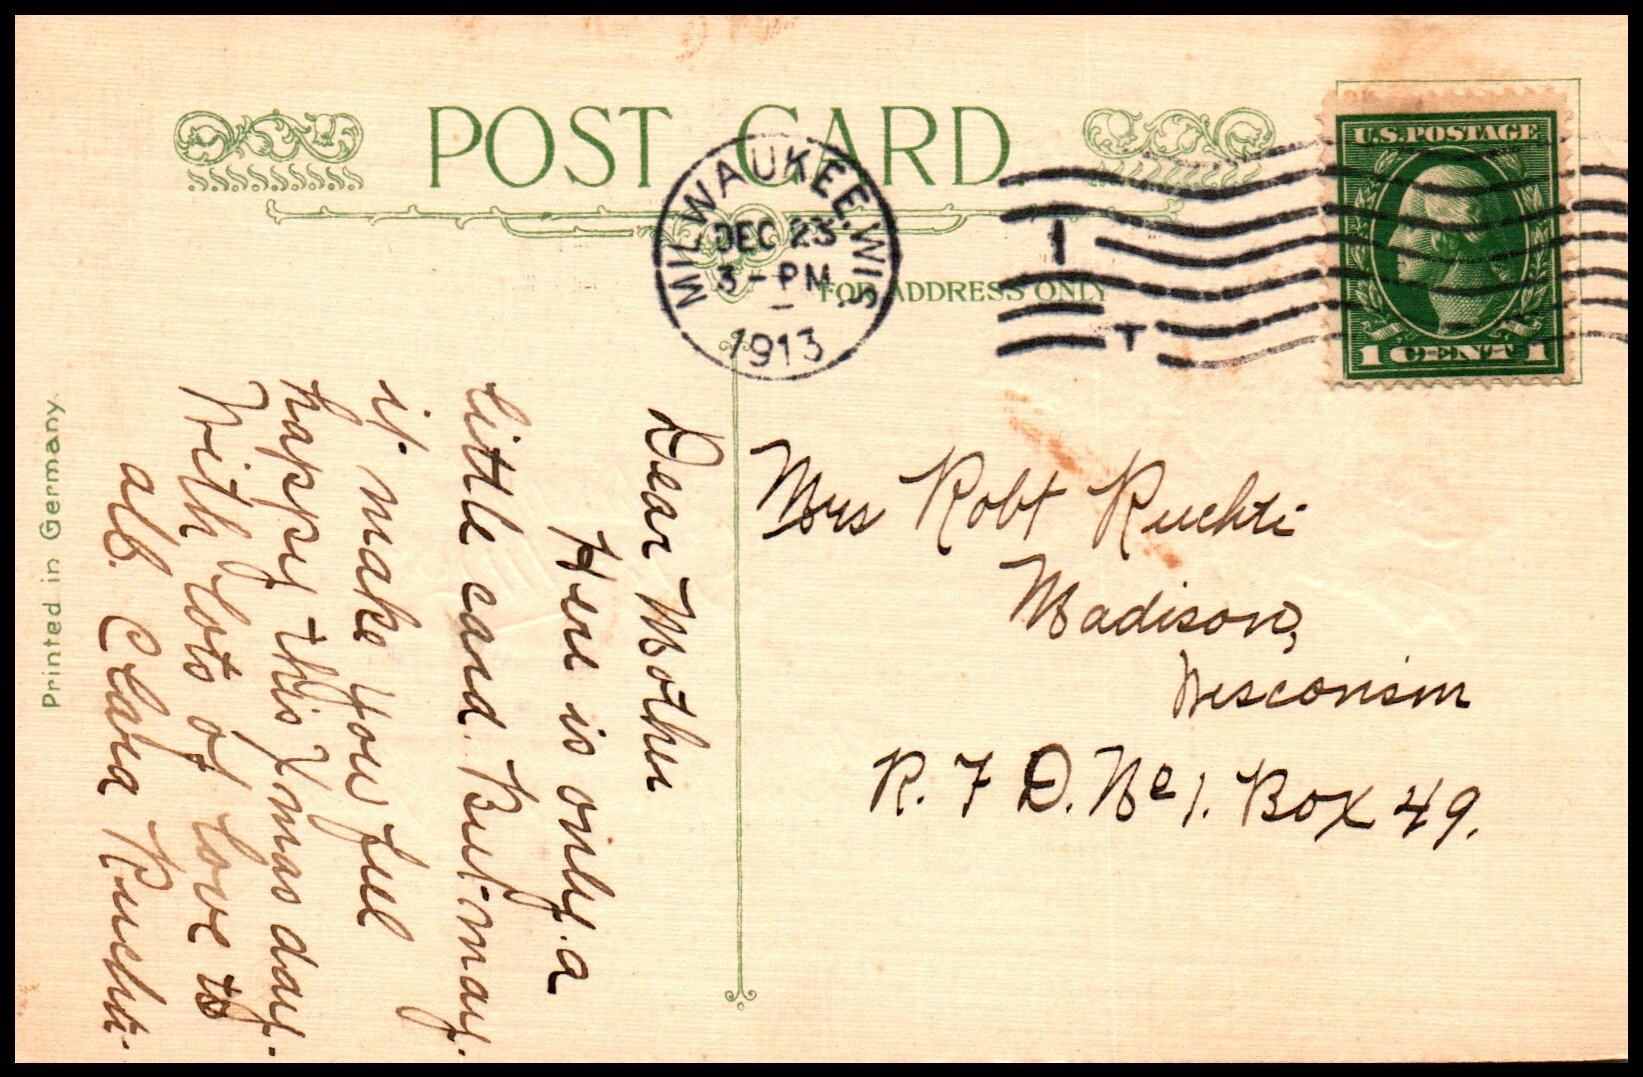 POST CARD.
MILWAUKEE, WIS.
DEC 23
3-PM
1913
FOR ADDRESS ONLY
1
T
U.S. POSTAGE
1 CENT 1
Printed in Germany
Dear Mother
Here is only a
little card. But may
it make you feel
happy this Xmas day.
With lots of love to
all. Clara Ruchti.
Mrs Robt Ruchti
Madison,
Wisconsin
R. F D. No 1. Box 49.